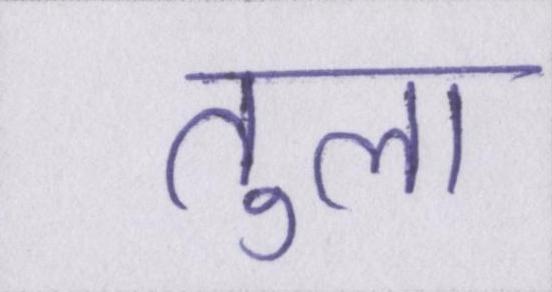 तुला